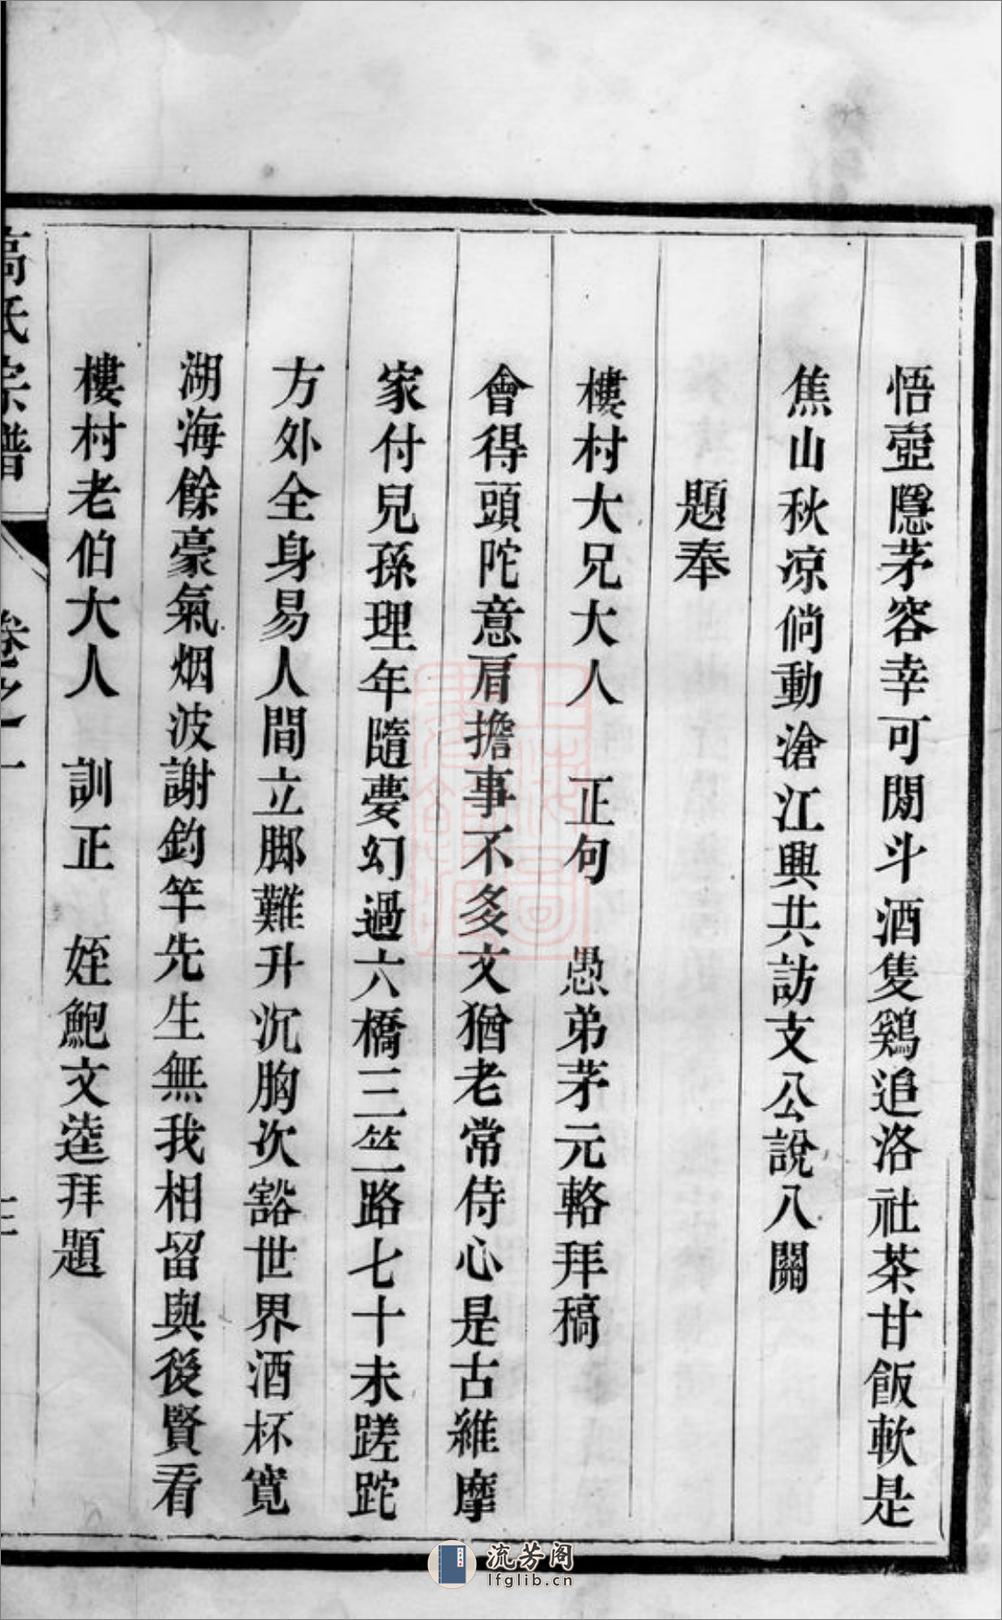 悟壺隱茅容幸可閒斗酒隻鷄追洛社茶甘飯軟是
焦山秋凉倘動滄江興共訪支公說八關
題奉
樓村大兄大人 正句 愚弟茅元輅拜稿
會得頭陀意肩擔事不多文猶老常侍心是古維摩
家付兒孫理年隨夢幻過六橋三竺路七十未蹉跎
方外全身易人間立脚難升沉胸次豁世界酒杯寬
湖海餘豪氣烟波謝釣竿先生無我相留與後賢看
樓村老伯大人 訓正 姪鮑文逵拜題
高氏宗譜 卷之一
流芳阁
lfglib.cn